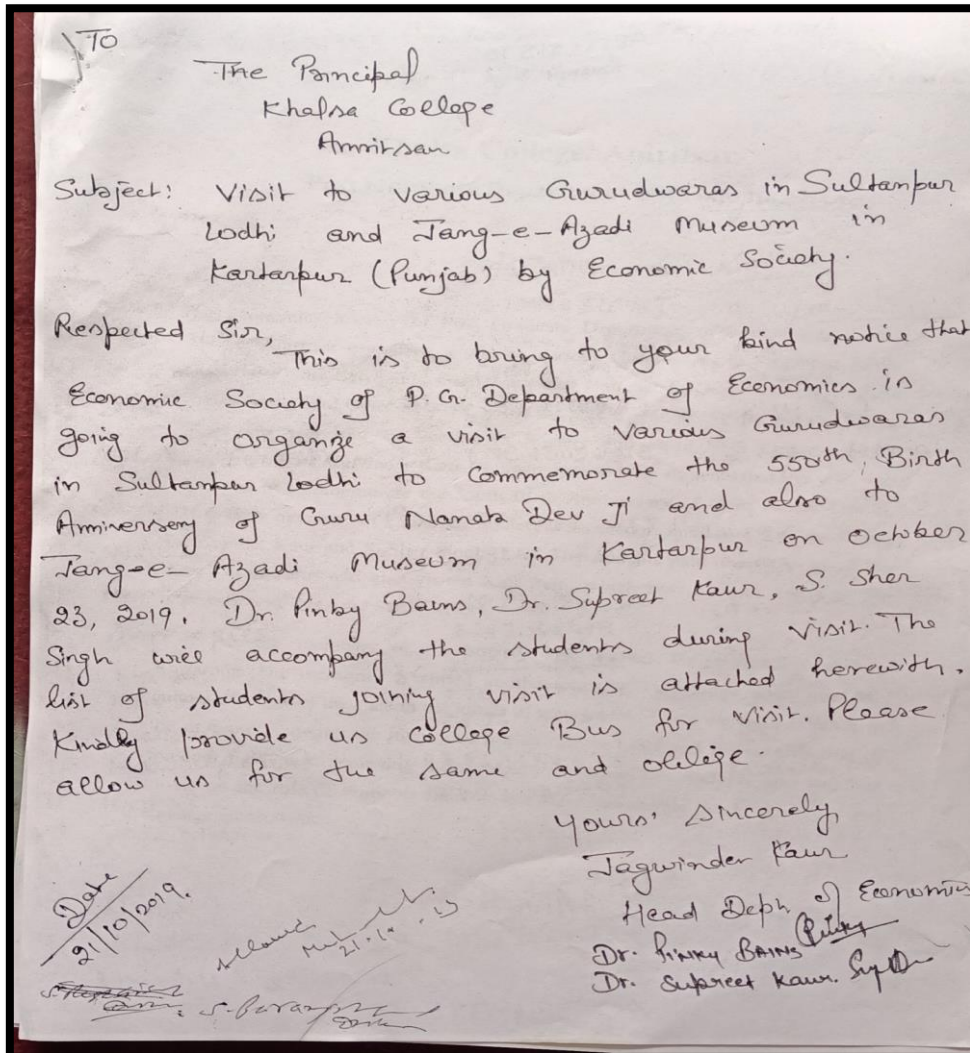 To
The Principal
Khalsa College
Amritsar
Subject: Visit to various Gurudwaras in Sultanpur
Lodhi and Jang-e-Azadi Museum in
Kartarpur (Punjab) by Economic Society.
Respected Sir,
This is to bring to your kind notice that
Economic Society of P.G. Department of Economics is
going to organize a visit to various Gurudwaras
in Sultanpur Lodhi to commemorate the 550th Birth
Anniversery of Guru Nanak Dev Ji and also to
Jang-e- Azadi Museum in Kartarpur on October
23, 2019. Dr. Pinky Bains, Dr. Supreet Kaur, S. Sher
Singh will accompany the students during visit. The
list of students joining visit is attached herewith.
Kindly provide us College Bus for visit. Please
allow us for the same and oblige.
Yours' sincerely,
Jagwinder Kaur
Head Deptt of Economics
Dr. PINKY BAINS
Dr. Supreet Kaur.
Date
21/10/2019.
allowed
21.10.19